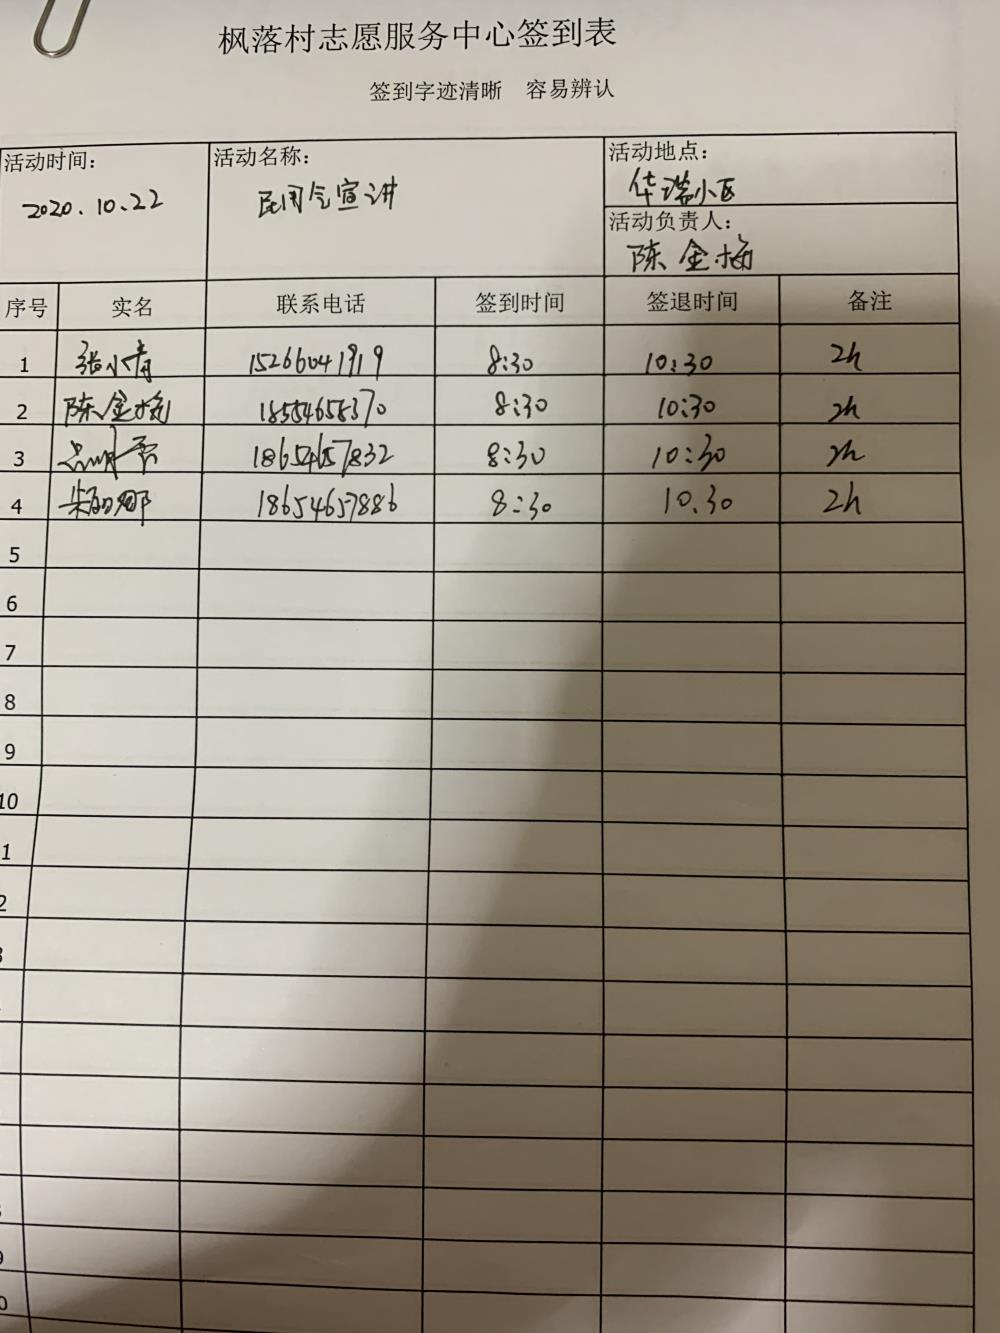 枫落村志愿服务中心签到表
签到字迹清晰 容易辨认
活动时间： 活动名称： 活动地点：
2020.10.22 民闭气宣讲 华瑞小区
活动负责人：
陈金梅
序号 实名 联系电话 签到时间 签退时间 备注
1 张小青 15266041919 8:30 10:30 2h
2 陈金梅 18554658370 8:30 10:30 2h
3 18654657832 8:30 10:30 2h
4 朱丽娜 18654657886 8:30 10.30 2h
5
6
7
8
9
10
1
2
3
9
0